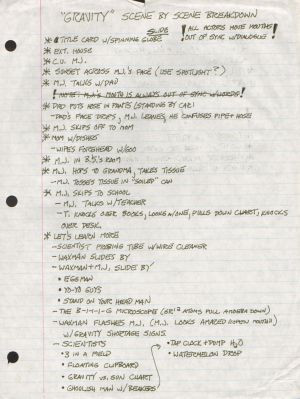 "GRAVITY" SCENE BY SCENE BREAKDOWN
SLIDE
! ALL ACTORS MOVE MOUTHS OUT OF SYNC W/DIALOGUE !
* TITLE CARD W/SPINNING GLOBE
* EXT. HOUSE
* C.U. M.J.
* SUNSET ACROSS M.J.'S FACE (USE SPOTLIGHT?)
* M.J. TALKS W/DAD
! NOTE: M.J.'S MOUTH IS ALWAYS OUT OF SYNC W/WORDS !
* DAD PUTS HOSE IN PANTS (STANDING BY CAR)
- DAD'S FACE DROPS, M.J. LEAVES, HE CONFUSES PIPE + HOSE
* M.J. SKIPS OFF TO MOM
* MOM W/DISHES
- WIPES FOREHEAD W/GOO
* M.J. IN B.'S ROOM
* M.J. HOPS TO GRANDMA, TAKES TISSUE
- M.J. TOSSES TISSUE IN "SOILED" CAN
* M.J. SKIPS TO SCHOOL
- M.J. TALKS W/TEACHER
- T. KNOCKS OVER BOOKS, LOOKS, PULLS DOWN CHART, KNOCKS
OVER DESK.
* LET'S LEARN MORE
- SCIENTIST PROBING TIBE W/WIRE CLEANER
- WAXMAN SLIDES BY
- WAXMAN + M.J. SLIDE BY
• EGGMAN
• YO-YO GUYS
• STAND ON YOUR HEAD MAN
- THE B-I-I-I-G MICROSCOPE (ATOMS PULL AMOEBA DOWN)
- WAXMAN FLASHES M.J. (M.J. LOOKS AMAZED (OPEN MOUTH))
W/GRAVITY SHORTAGE SIGNS.
- SCIENTISTS
• 3 IN A FIELD
• FLOATING CLIPBOARD
• GRAVITY VS. GUN CHART
• GHOULISH MAN W/BEAKERS
• TAP CLOCK + PUMP H₂O
• WATERMELON DROP